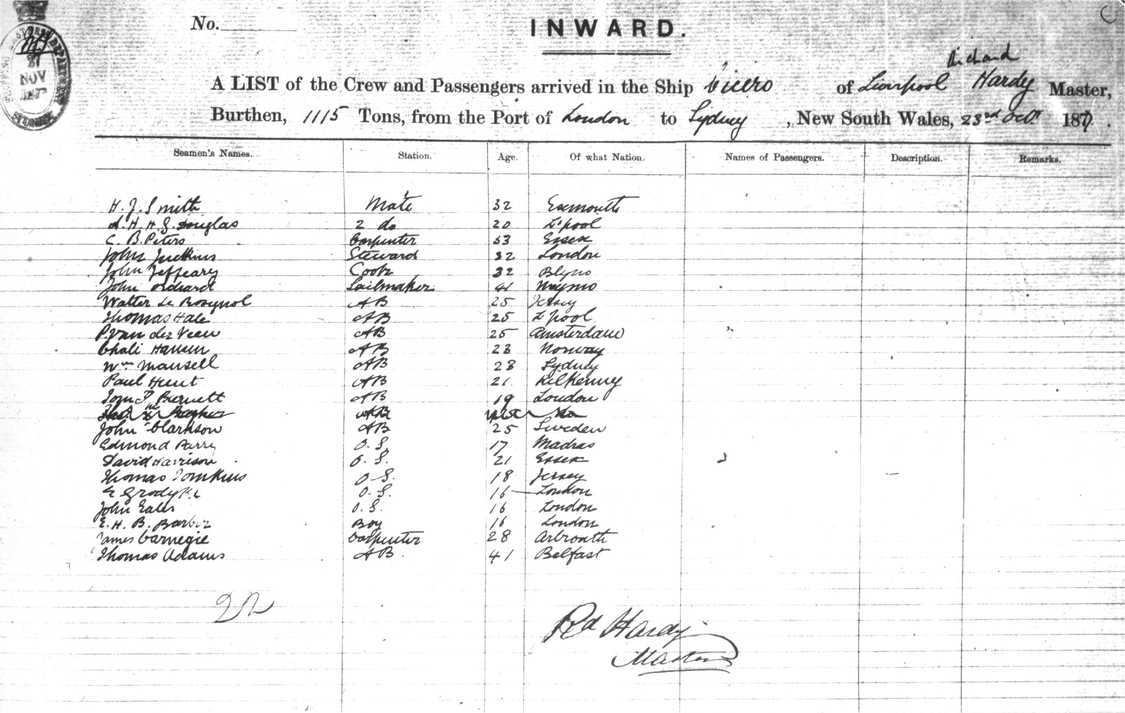 No.
INWARD.
A LIST of the Crew and Passengers arrived in the Ship Cicero of Liverpool Richard Hardy Master,
Burthen, 1115 Tons, from the Port of London to Sydney, New South Wales, 23rd Oct 187
Seamen's Names. Station. Age. Of what Nation. Names of Passengers. Description. Remarks.
H. J. Smith Mate 32 Exmouth
A. H. H. G. Douglas 2 do 20 L'pool
C. B. Peters Carpenter 53 Essex
John Juckins Steward 32 London
John Jeffeary Cook 32 Blyno
John Sailmaker 41
Walter Le Rosignol AB 25 Jersey
Thomas Hale AB 25 L'pool
P van der Veen AB 25 Amsterdam
Chali Hansen AB 28 Norway
Wm Mansell AB 28 Sydney
Paul Hunt AB 21 Kilkenny
Tom P Burnett AB 19 London
AB
John Clarkson AB 25 Sweden
Edmond Parry O.S. 17 Madras
David Harrison O.S. 21 Essex
Thomas Tomkins O.S. 18 Jersey
O.S. 16 London
John Eales O.S. 16 London
E. H. B. Barber Boy 16 London
James Carnegie Carpenter 28 Arbroath
Thomas Adams AB 41 Belfast
22
Rd Hardy
Master
21
NOV
C